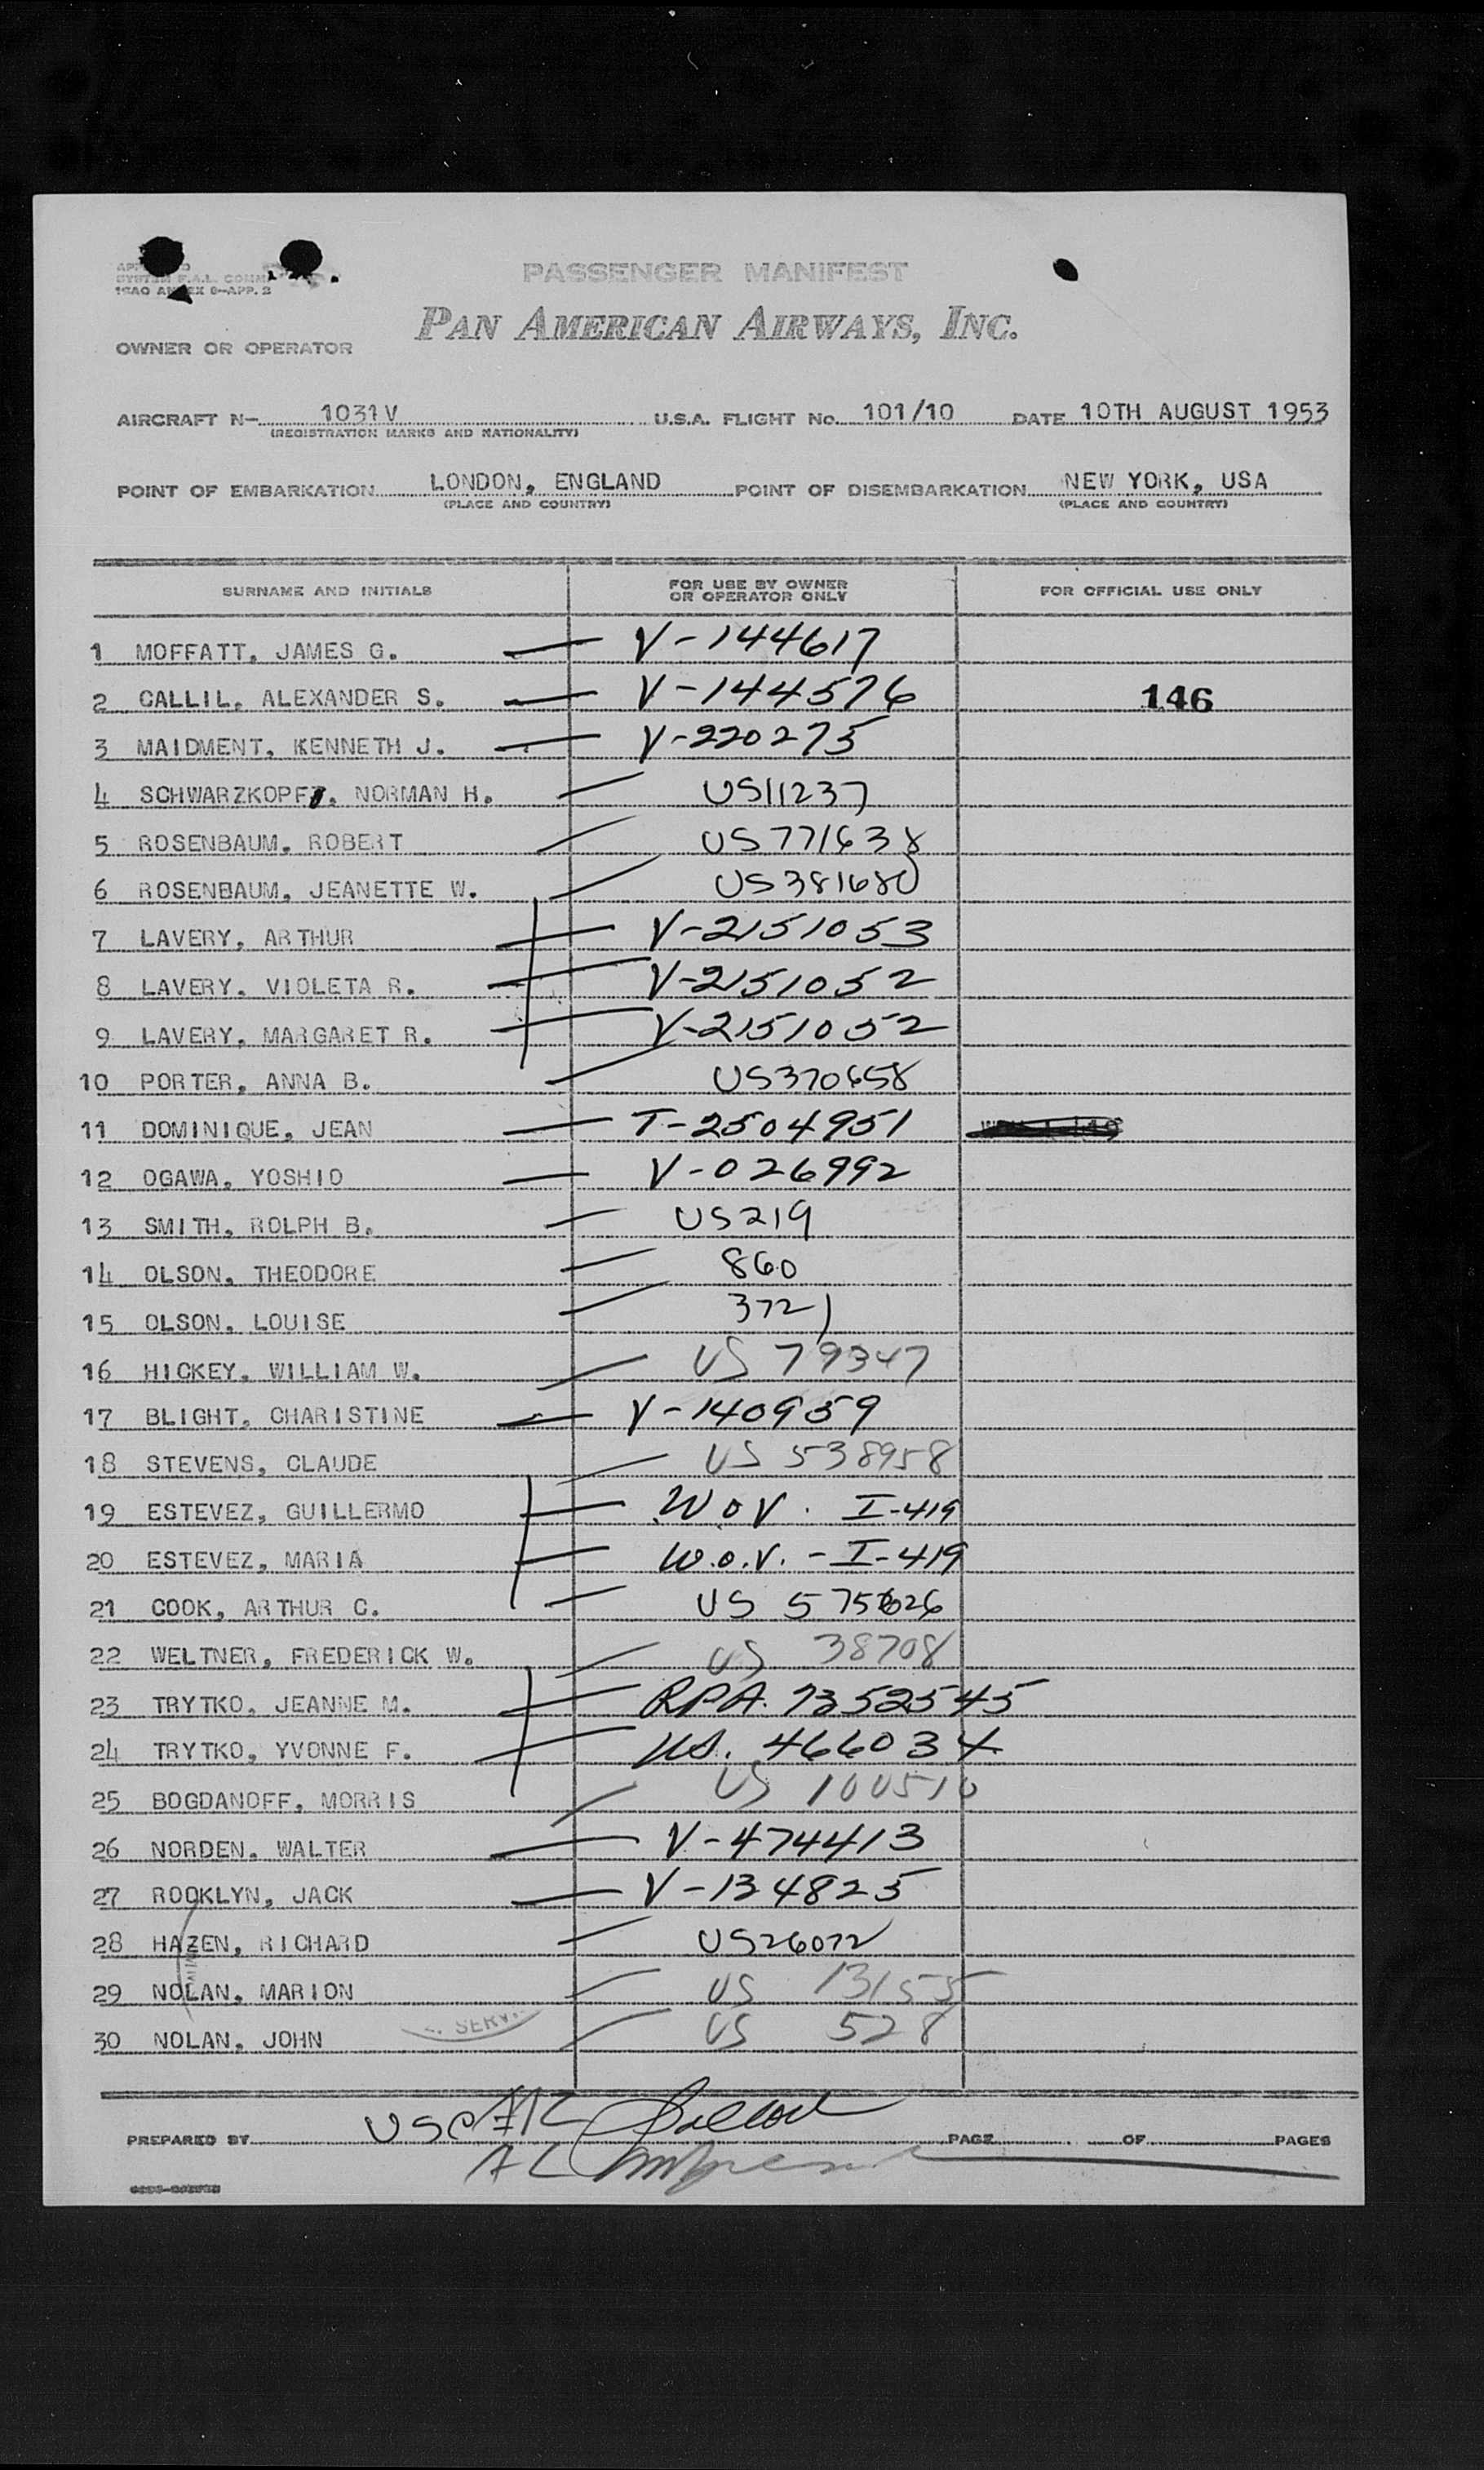 PASSENGER MANIFEST
ICAO ANNEX 9—APP. 2
PAN AMERICAN AIRWAYS, INC.
OWNER OR OPERATOR
AIRCRAFT N- 1031V U.S.A. FLIGHT No. 101/10 DATE 10TH AUGUST 1953
(REGISTRATION MARKS AND NATIONALITY)
POINT OF EMBARKATION LONDON, ENGLAND POINT OF DISEMBARKATION NEW YORK, USA
(PLACE AND COUNTRY) (PLACE AND COUNTRY)
SURNAME AND INITIALS FOR USE BY OWNER OR OPERATOR ONLY FOR OFFICIAL USE ONLY
1 MOFFATT, JAMES G. — V-144617
2 CALLIL, ALEXANDER S. — V-144576 146
3 MAIDMENT, KENNETH J. — V-220275
4 SCHWARZKOPF, NORMAN H. US11237
5 ROSENBAUM, ROBERT US771638
6 ROSENBAUM, JEANETTE W. US381680
7 LAVERY, ARTHUR — V-2151053
8 LAVERY, VIOLETA R. — V-2151052
9 LAVERY, MARGARET R. — V-2151052
10 PORTER, ANNA B. US370658
11 DOMINIQUE, JEAN — T-2504951
12 OGAWA, YOSHIO — V-026992
13 SMITH, ROLPH B. US219
14 OLSON, THEODORE 860
15 OLSON, LOUISE 3721
16 HICKEY, WILLIAM W. US 79347
17 BLIGHT, CHARISTINE — V-140959
18 STEVENS, CLAUDE US 538958
19 ESTEVEZ, GUILLERMO — W.O.V. I-419
20 ESTEVEZ, MARIA — W.O.V. - I-419
21 COOK, ARTHUR C. US 575626
22 WELTNER, FREDERICK W. US 38708
23 TRYTKO, JEANNE M. — RPA. 7352545
24 TRYTKO, YVONNE F. — US. 466034
25 BOGDANOFF, MORRIS US 100510
26 NORDEN, WALTER — V-474413
27 ROOKLYN, JACK — V-134825
28 HAZEN, RICHARD US26072
29 NOLAN, MARION US 13155
30 NOLAN, JOHN US 528
SERV.
PREPARED BY USC PAGE OF PAGES